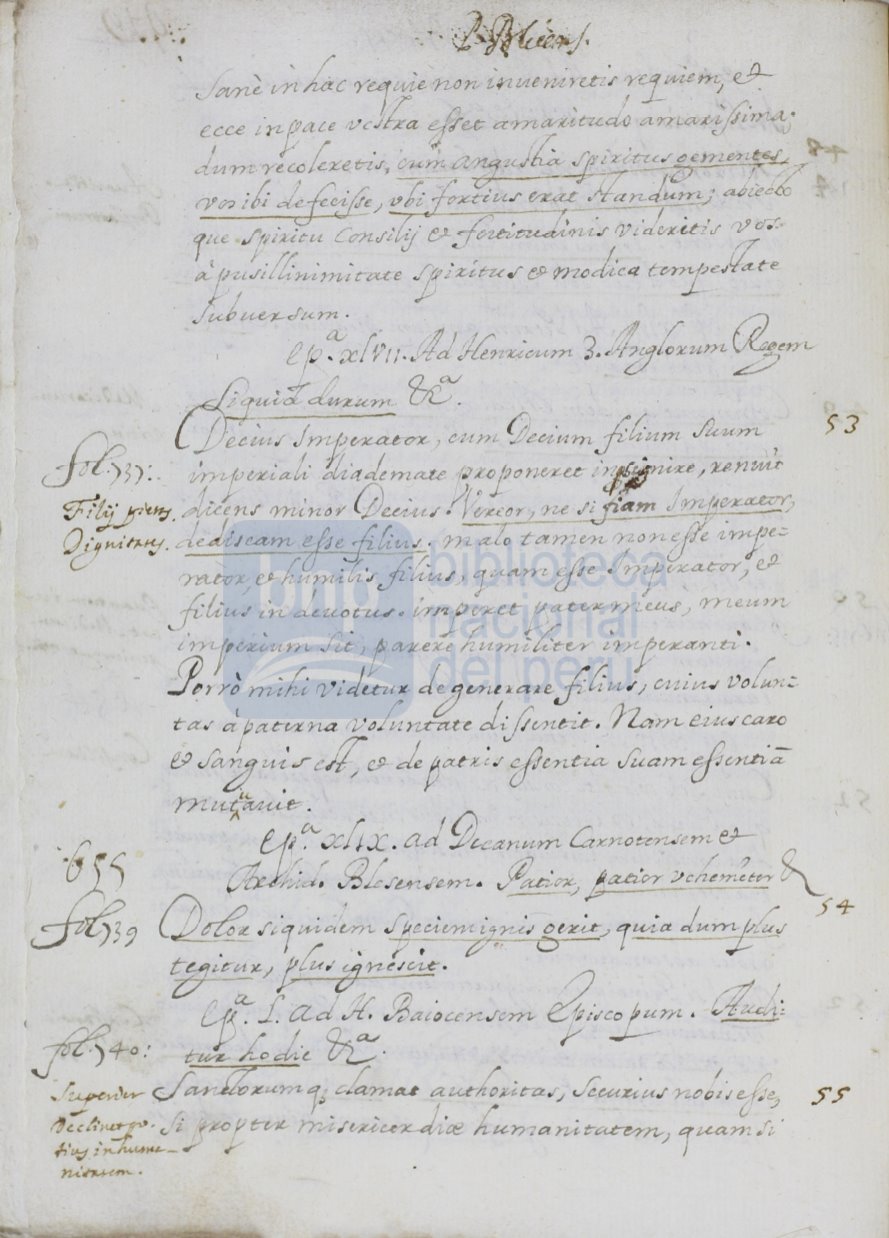 P. Blicens.
sanè in hac requie non inveniretis requiem, et
ecce in pace vestra esset amaritudo amarissima.
dum recoleretis, cum angustia spiritus gementes,
vos ibi defecisse, vbi fortius erat standum; abiecto
que spiritu Consilij et fortitudinis videritis vos
à pusillinimitate spiritus et modica tempestate
subuersum.
Ep.ª xlvii. Ad Henricum 3. Anglorum Regem
Siquid durum &ª.
Decius Imperator, cum Decium filium suum
53
fol. 737:
imperiali diademate proponeret insignire, renuit
Filij pietas.
dicens minor Decius. Vereor, ne si fiam Imperator,
Dignitas.
dediscam esse filius. malo tamen non esse impe-
rator, et humilis filius, quam esse Imperator, et
filius indevotus. imperet pater meus, meum
imperium sit, parere humiliter imperanti.
Porrò mihi videtur degenerare filius, cuius volun-
tas à paterna voluntate dissentit. Nam eius caro
et sanguis est, et de patris essentia suam essentiā
mutuavit.
Ep.ª xlix. ad Decanum Carnotensem et
655
Archid. Blesensem. Patior, patior vehemēter &
54
fol 739
Dolor siquidem speciem ignis gerit, quia dum plus
tegitur, plus ignescit.
Ep.ª L. ad H. Baiocensem Episcopum. Audi-
fol. 740:
tur hodie &ª.
Superior
Sanctorumq, clamat authoritas, securius nobis esse,
55
declinet po-
si propter misericordiæ humanitatem, quam si
tius in huma-
nitatem.
bnp
biblioteca
nacional
del perú